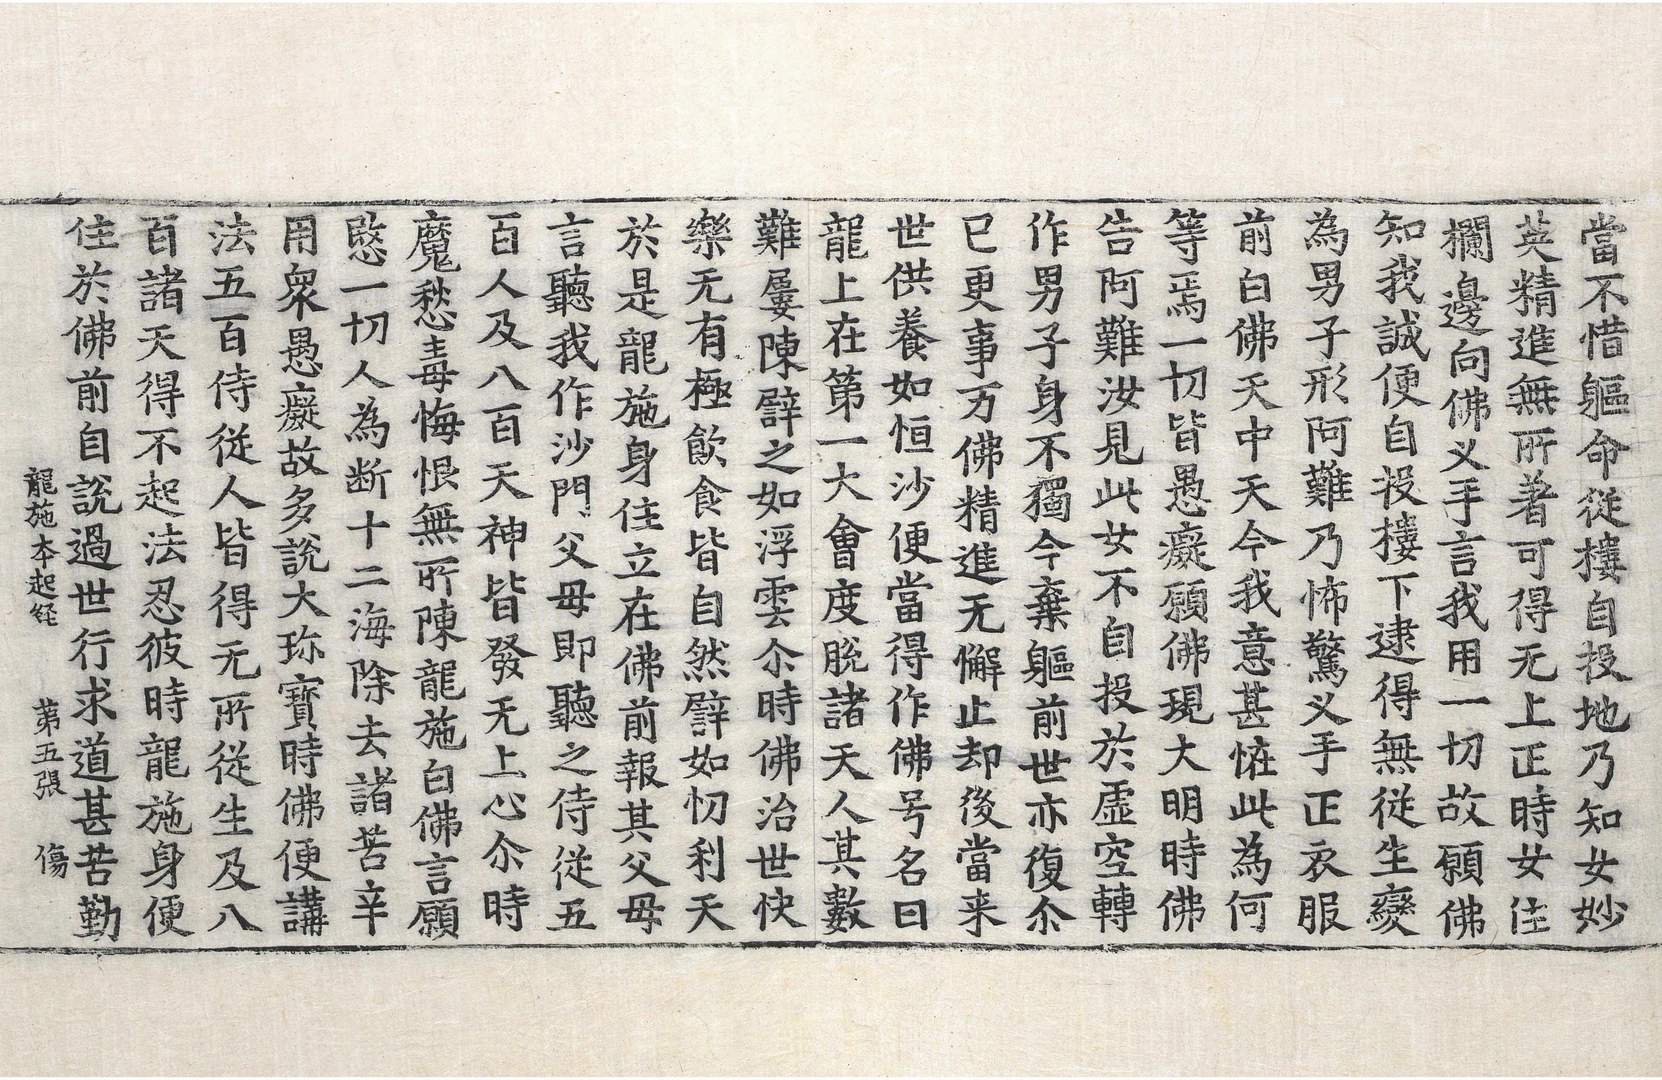 當不惜軀命從樓自投地乃知女妙
英精進無所著可得无上正時女住
欄邊向佛叉手言我用一切故願佛
知我誠便自投樓下逮得無從生變
為男子形阿難乃怖驚叉手正衣服
前白佛天中天今我意甚恠此為何
等焉一切皆愚癡願佛現大明時佛
告阿難汝見此女不自投於虛空轉
作男子身不獨今棄軀前世亦復尒
已更事万佛精進无懈止却後當来
世供養如恒沙便當得作佛号名曰
龍上在第一大會度脫諸天人其數
難屢陳譬之如浮雲尒時佛治世快
樂无有極飲食皆自然譬如忉利天
於是龍施身住立在佛前報其父母
言聽我作沙門父母即聽之侍従五
百人及八百天神皆發无上心尒時
魔愁毒悔恨無所陳龍施白佛言願
愍一切人為断十二海除去諸苦辛
用衆愚癡故多說大珎寶時佛便講
法五百侍従人皆得无所従生及八
百諸天得不起法忍彼時龍施身便
住於佛前自說過世行求道甚苦勤
龍施本起経　第五張　傷